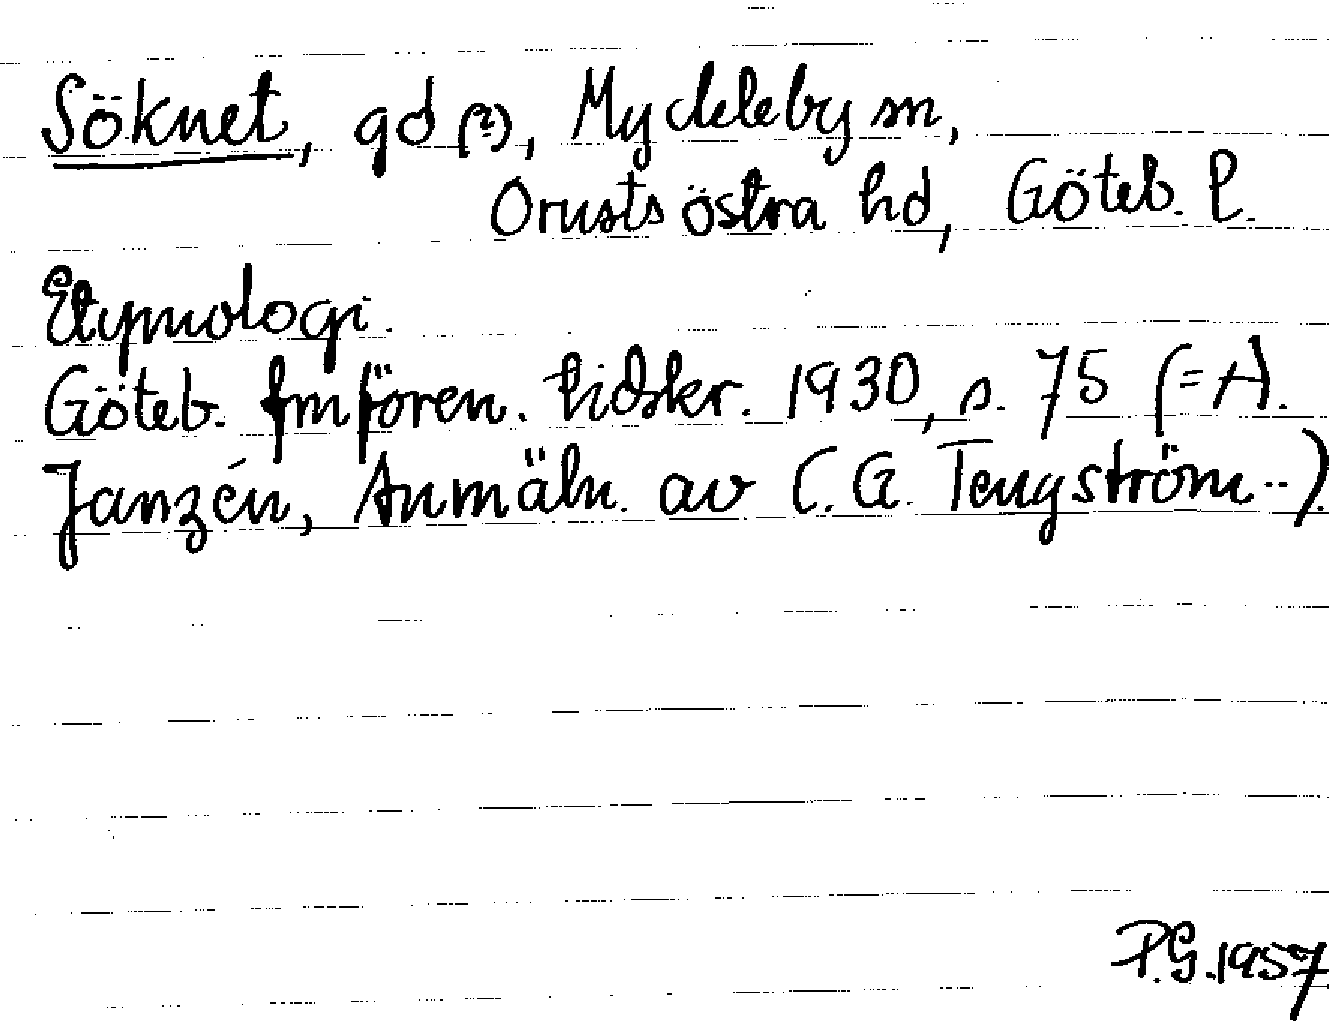 Söknet, gd (?), Myckleby sn,
Orusts östra hd, Göteb. l.
Etymologi.
Göteb. fmfören. tidskr. 1930, s. 75 (= A.
Janzén, Anmäln. av C. G. Tengström..).
P.G. 1957